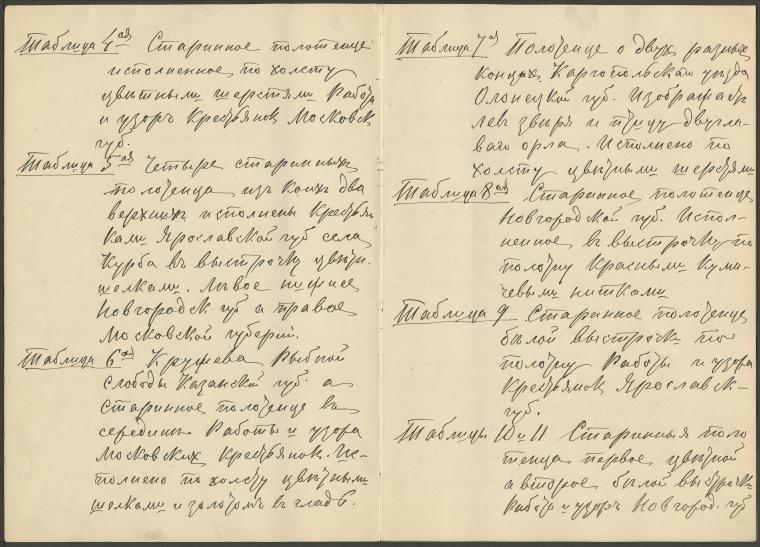 Таблица 4ая Старинное полотенце
исполненное по холсту
цвѣтными шерстями Работа
и узоръ Крестьянок Московск
губ.
Таблица 5ая Четыре старинныхъ
полотенца изъ коихъ два
верхнихъ исполнены Крестьян
ками Ярославской губ села
Курба въ выстрочку цвѣтн.
шелками. Лѣвое нижнее
Новгородск губ а правое
Московской губерніи.
Таблица 6ая Кружева Рыбной
слободы Казанской губ. а
старинное полотенце въ
серединѣ Работы и узора
Московских Крестьянок. Ис-
полнено по холсту цвѣтными
шелками и золотомъ въ гладь.
Таблица 7ая Полотенце о двухъ разныхъ
концахъ Каргопольскаго уѣзда
Олонецкой губ. Изображаетъ
левъ звѣря и птицу двугла-
ваго орла. Исполнено по
холсту цвѣтными шерстями
Таблица 8ая Старинное полотенце
Новгородской губ. Испол-
ненное въ выстрочку по
полотну Красными Кума-
чевыми нитками
Таблица 9 Старинное полотенце
бѣлой выстрочки по
полотну Работы и узора
Крестьянок Ярославск-
губ.
Таблицы 10 и 11 Старинныя поло
тенца первое цвѣтной
а второе бѣлой выстрочки
Работа и узоръ Новгород. губ